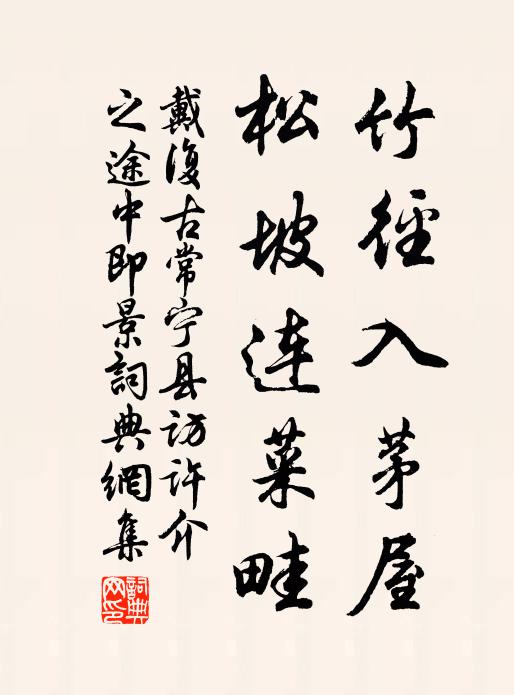 竹徑入茅屋
松坡連菜畦
戴復古常宁县訪許介
之途中即景詞典網集
詞典
网印